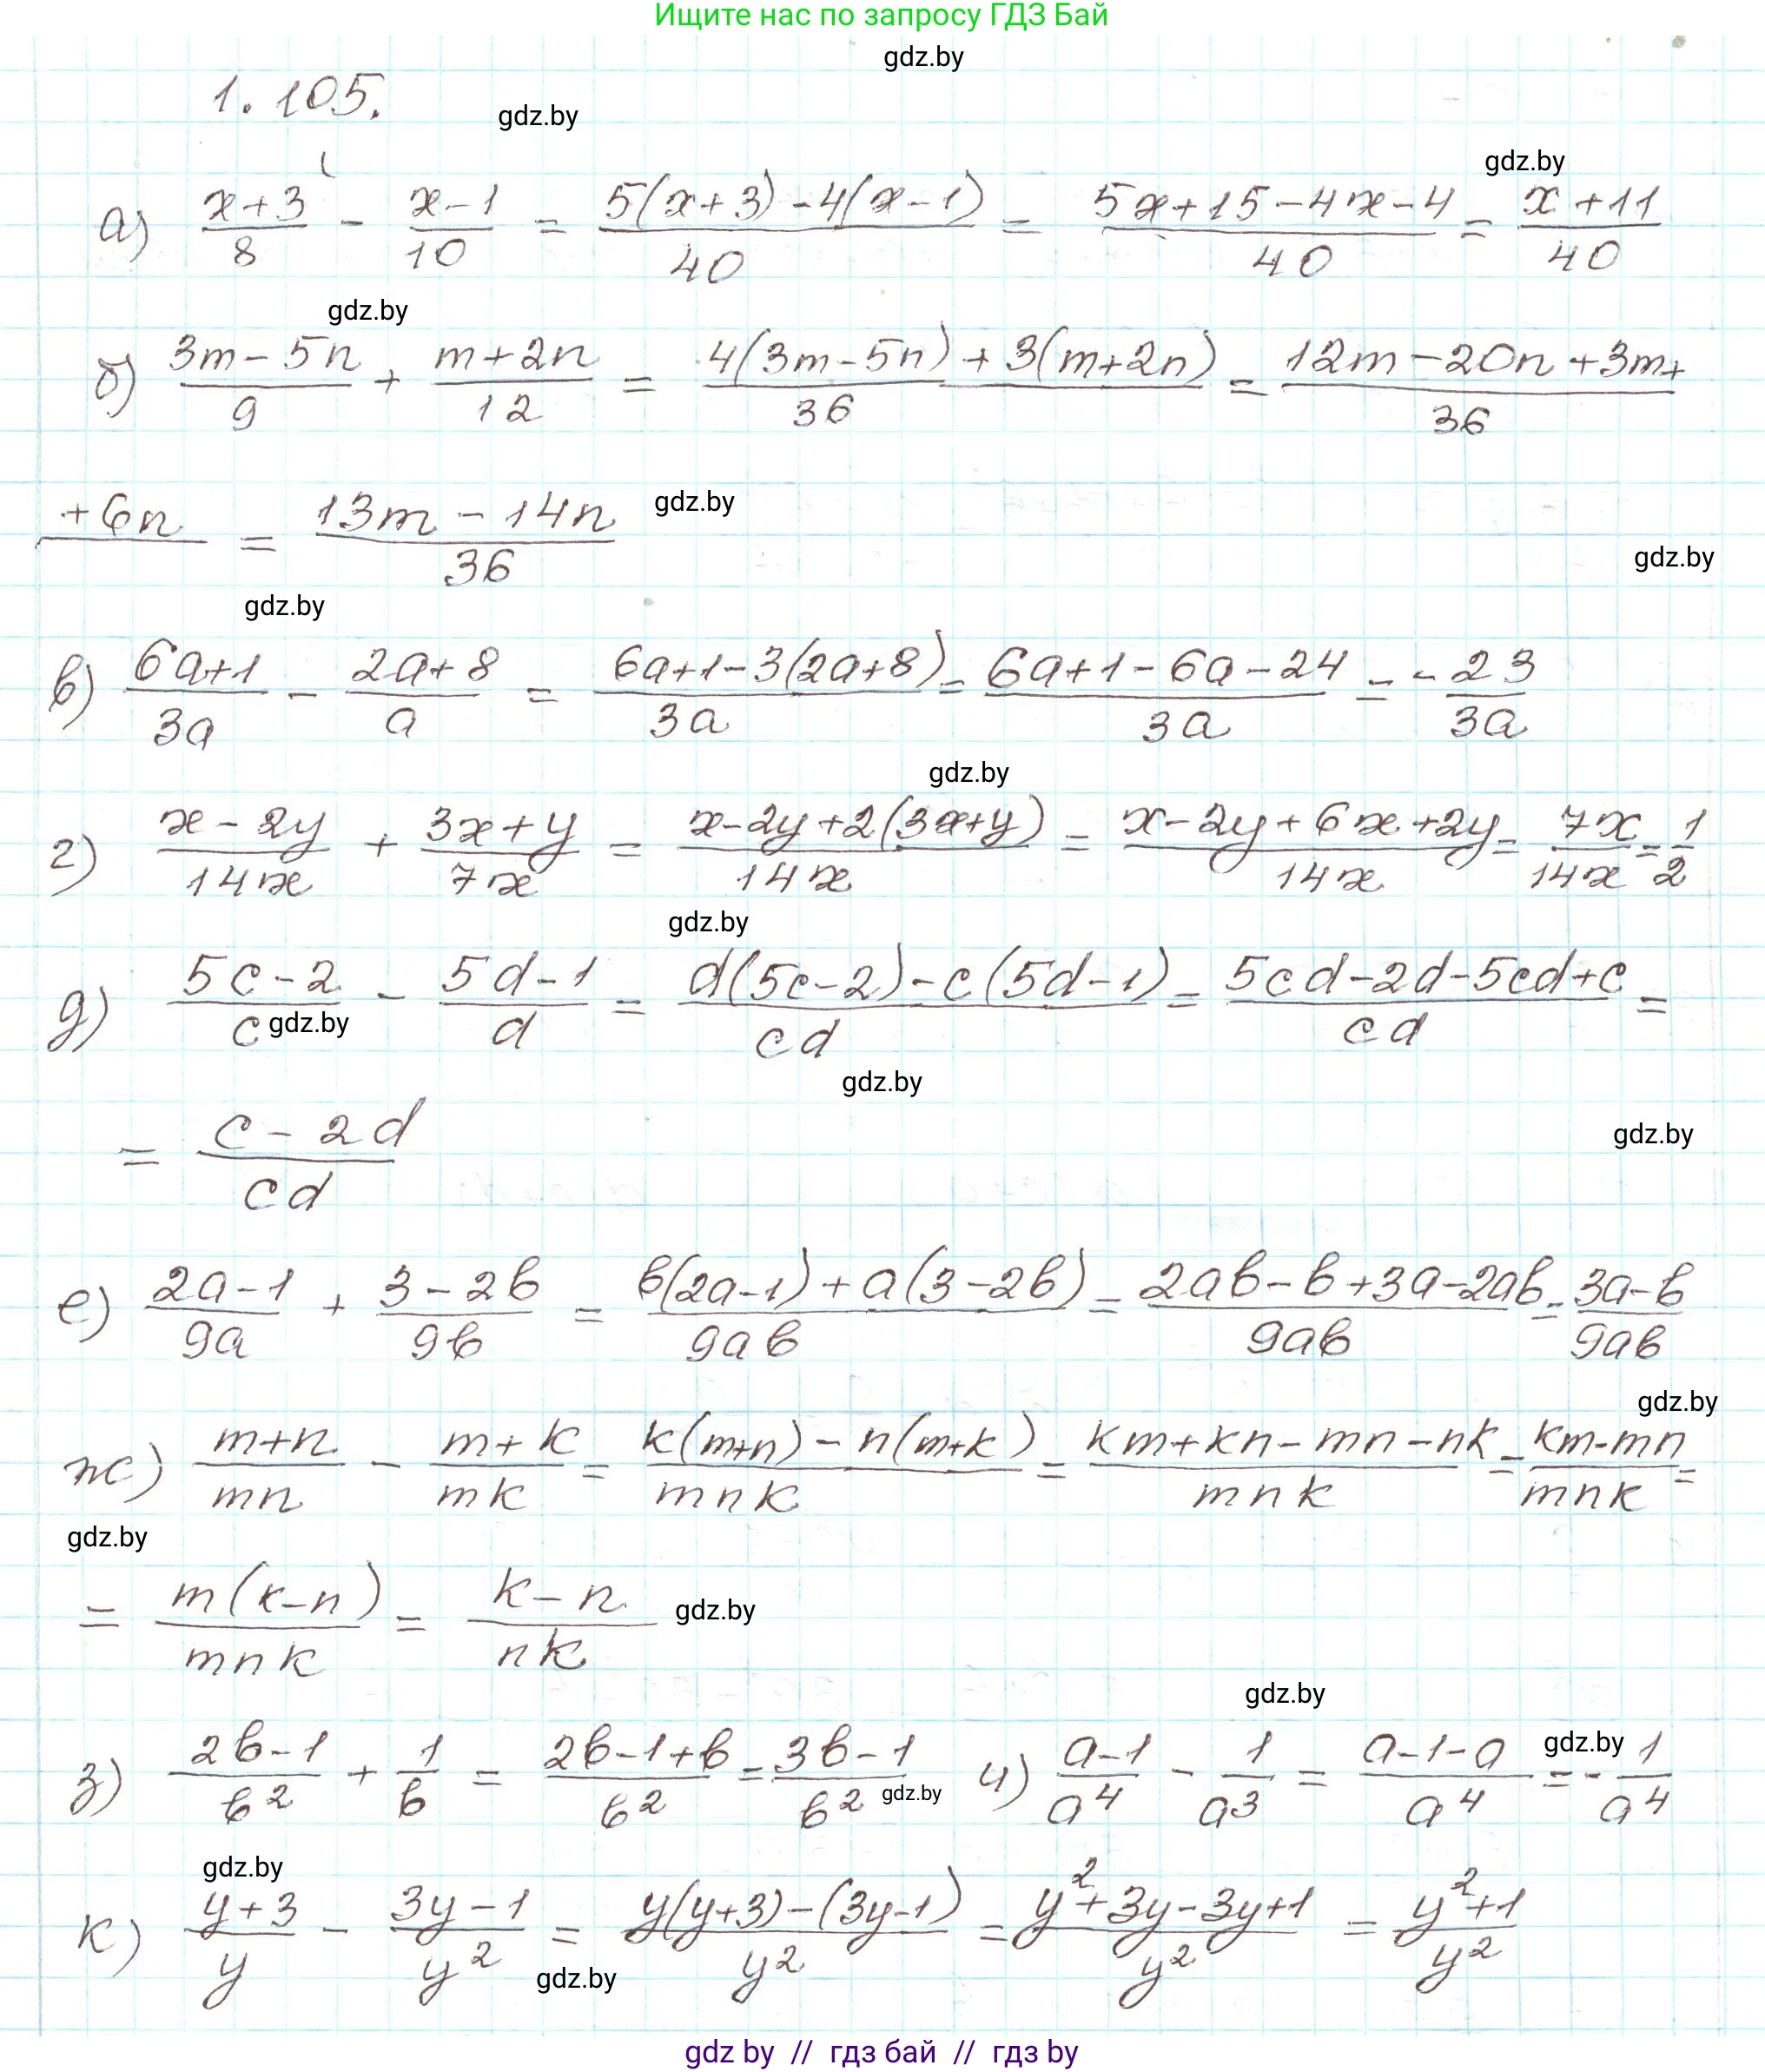 Ищите нас по запросу ГДЗ Бай
gdz.by
1.105.
gdz.by
gdz.by
а) (x+3)/8 - (x-1)/10 = (5(x+3)-4(x-1))/40 = (5x+15-4x-4)/40 = (x+11)/40
gdz.by
б) (3m-5n)/9 + (m+2n)/12 = (4(3m-5n)+3(m+2n))/36 = (12m-20n+3m+)/36
+6n = (13m-14n)/36
gdz.by
gdz.by
gdz.by
в) (6a+1)/3a - (2a+8)/a = (6a+1-3(2a+8))/3a = (6a+1-6a-24)/3a = -23/3a
gdz.by
г) (x-2y)/14x + (3x+y)/7x = (x-2y+2(3x+y))/14x = (x-2y+6x+2y)/14x = 7x/14x = 1/2
gdz.by
д) (5c-2)/c - (5d-1)/d = (d(5c-2)-c(5d-1))/cd = (5cd-2d-5cd+c)/cd =
gdz.by
gdz.by
= (c-2d)/cd
gdz.by
е) (2a-1)/9a + (3-2b)/9b = (b(2a-1)+a(3-2b))/9ab = (2ab-b+3a-2ab)/9ab = (3a-b)/9ab
gdz.by
ж) (m+n)/mn - (m+k)/mk = (k(m+n)-n(m+k))/mnk = (km+kn-mn-nk)/mnk = (km-mn)/mnk =
gdz.by
= m(k-n)/mnk = (k-n)/nk
gdz.by
gdz.by
з) (2b-1)/b² + 1/b = (2b-1+b)/b² = (3b-1)/b² gdz.by и) (a-1)/a⁴ - 1/a³ = (a-1-a)/a⁴ = -1/a⁴
gdz.by
gdz.by
к) (y+3)/y - (3y-1)/y² = (y(y+3)-(3y-1))/y² = (y²+3y-3y+1)/y² = (y²+1)/y²
gdz.by
gdz by // гдз бай // гдз by